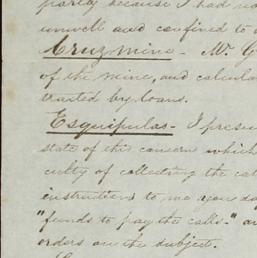 partly because I had no
unwell and confined to
Cruz mine - Mr. G
of the mine, and calcula
tracted by loans.
Esquipulas - I presu
state of this concern which
culty of collecting the cal
instructions to me you da
"funds to pay the calls - " an
orders on the subject.